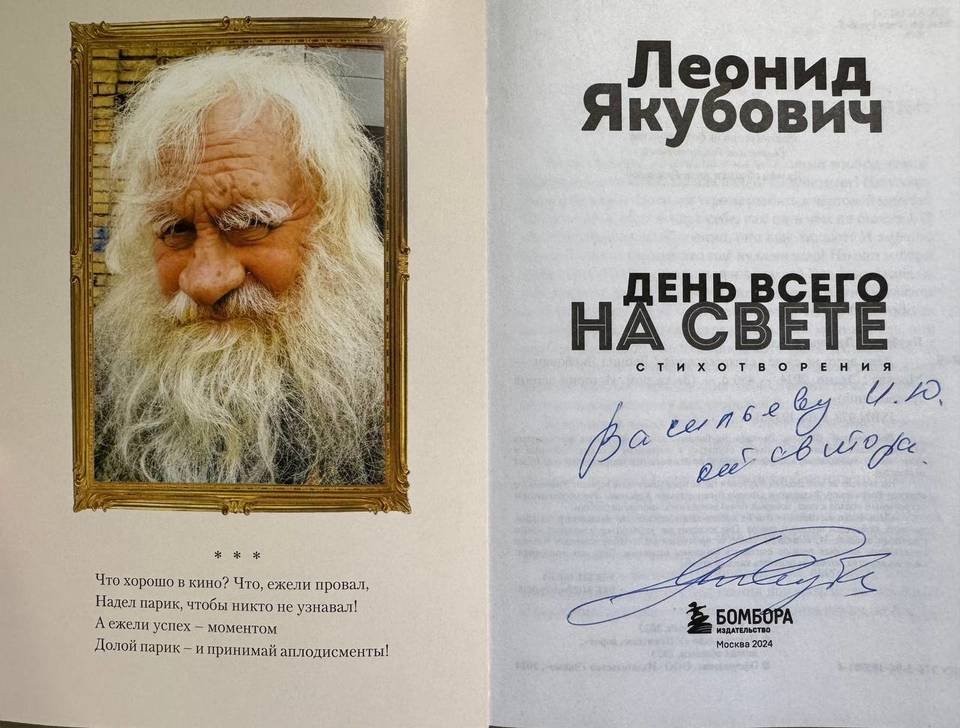 * * *
Что хорошо в кино? Что, ежели провал,
Надел парик, чтобы никто не узнавал!
А ежели успех – моментом
Долой парик – и принимай аплодисменты!
Леонид
Якубович
ДЕНЬ ВСЕГО
НА СВЕТЕ
СТИХОТВОРЕНИЯ
Васильеву И.Ю.
от автора.
БОМБОРА
ИЗДАТЕЛЬСТВО
Москва 2024